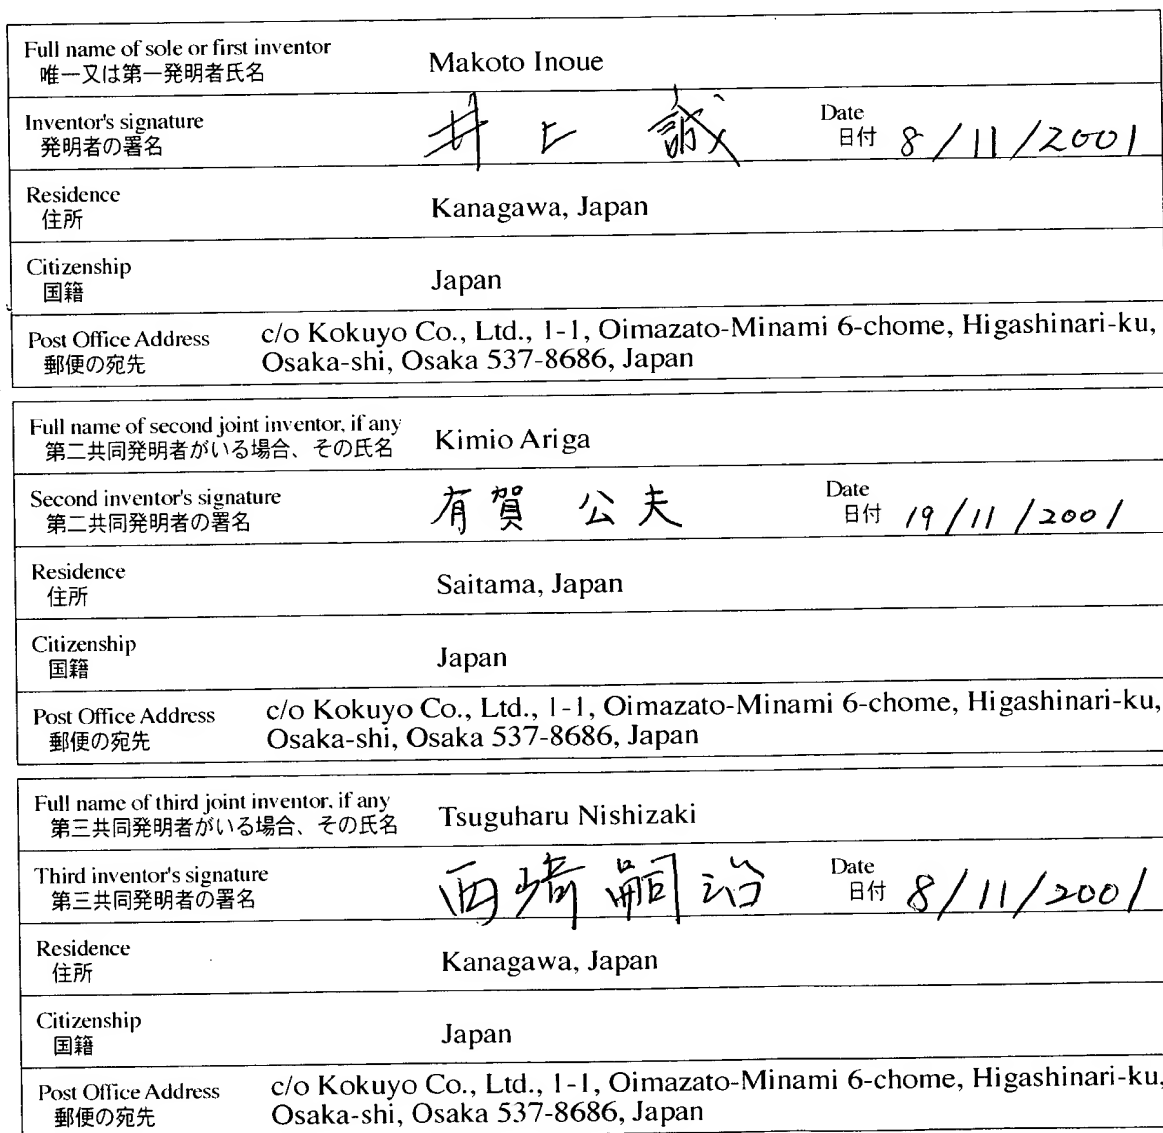 Full name of sole or first inventor
唯一又は第一発明者氏名 Makoto Inoue
Inventor's signature
発明者の署名 井上 誠 Date 日付 8/11/2001
Residence
住所 Kanagawa, Japan
Citizenship
国籍 Japan
Post Office Address c/o Kokuyo Co., Ltd., 1-1, Oimazato-Minami 6-chome, Higashinari-ku,
郵便の宛先 Osaka-shi, Osaka 537-8686, Japan
Full name of second joint inventor, if any
第二共同発明者がいる場合、その氏名 Kimio Ariga
Second inventor's signature
第二共同発明者の署名 有賀 公夫 Date 日付 19/11/2001
Residence
住所 Saitama, Japan
Citizenship
国籍 Japan
Post Office Address c/o Kokuyo Co., Ltd., 1-1, Oimazato-Minami 6-chome, Higashinari-ku,
郵便の宛先 Osaka-shi, Osaka 537-8686, Japan
Full name of third joint inventor, if any
第三共同発明者がいる場合、その氏名 Tsuguharu Nishizaki
Third inventor's signature
第三共同発明者の署名 西崎 嗣治 Date 日付 8/11/2001
Residence
住所 Kanagawa, Japan
Citizenship
国籍 Japan
Post Office Address c/o Kokuyo Co., Ltd., 1-1, Oimazato-Minami 6-chome, Higashinari-ku,
郵便の宛先 Osaka-shi, Osaka 537-8686, Japan